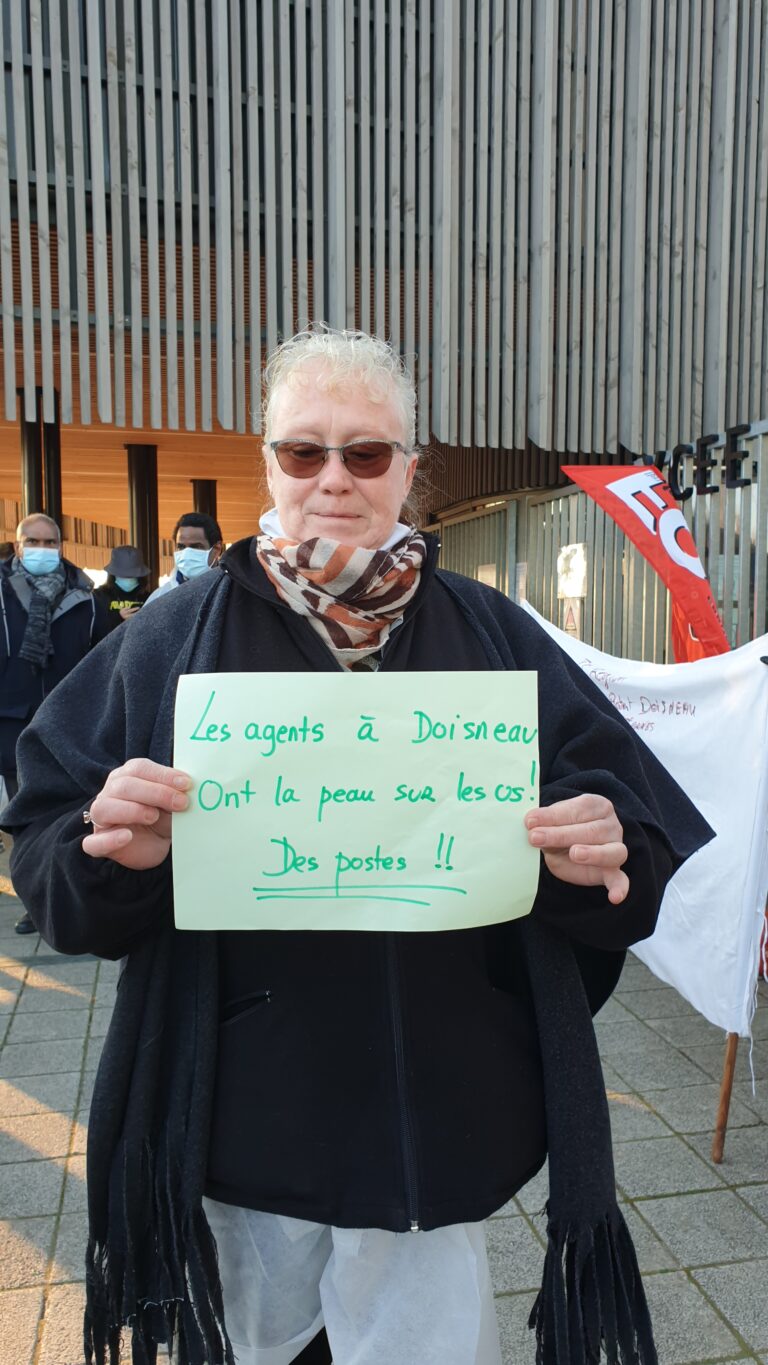 Les agents à Doisneau
Ont la peau sur les os!
Des postes !!
YCEE
EO
DOISNEAU